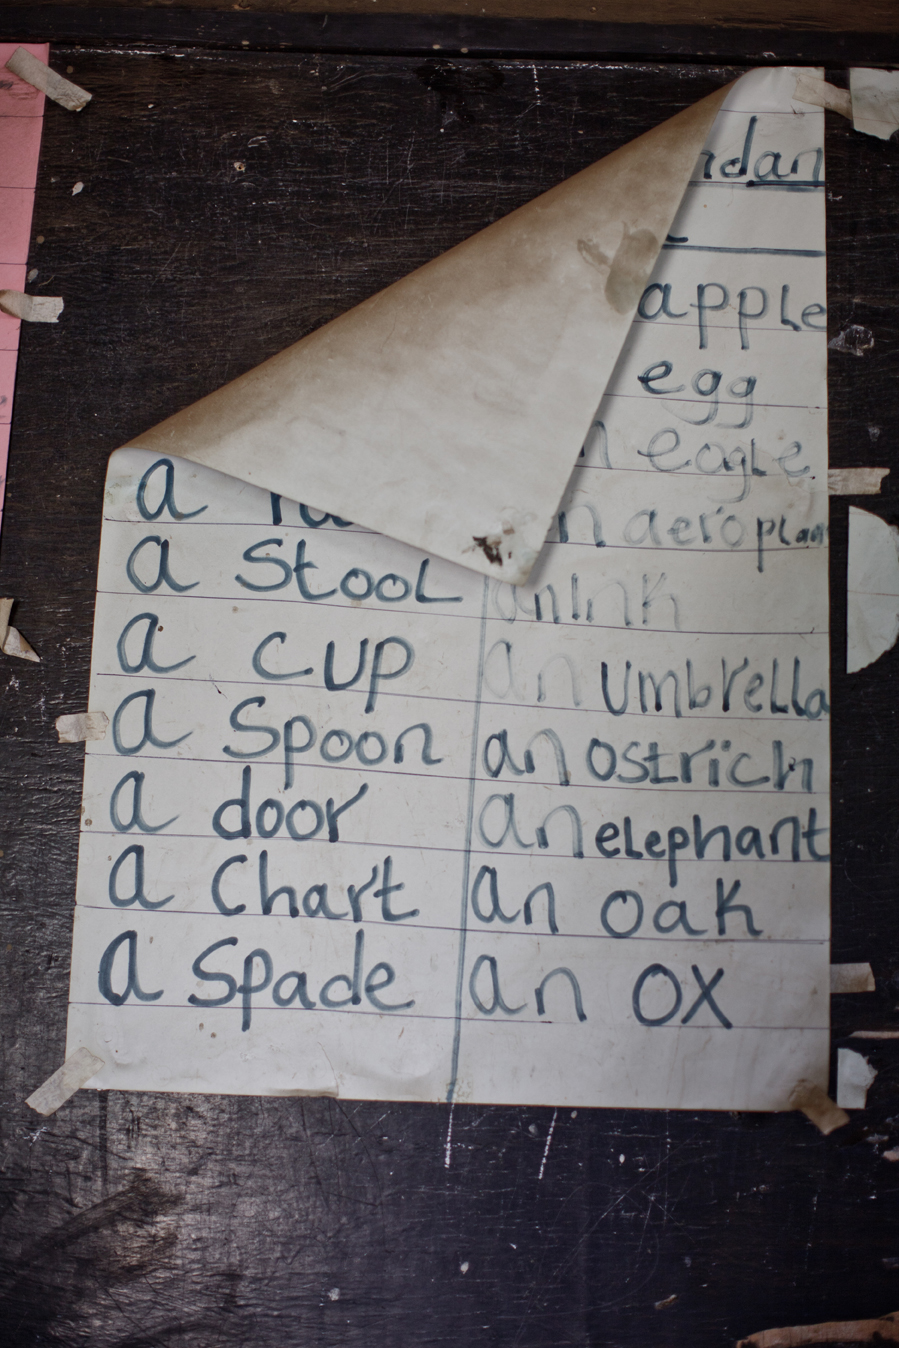 apple
egg
eagle
a
n aeroplan
a Stool
an Ink
a cup
an umbrella
a Spoon
an ostrich
a door
an elephant
a Chart
an oak
a Spade
an ox